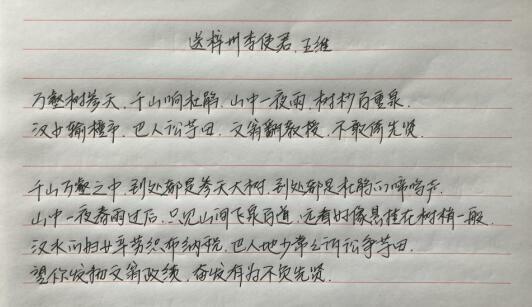 送梓州李使君.王维
万壑树参天.千山响杜鹃.山中一夜雨.树杪百重泉.
汉女输橦布.巴人讼芋田.文翁翻教授.不敢倚先贤.
千山万壑之中.到处都是参天大树.到处都是杜鹃的啼鸣声.
山中一夜春雨过后.只见山间飞泉百道.远看好像悬挂在树梢一般.
汉水的妇女辛劳织布纳税.巴人地少常之所讼争芋田.
望你发扬文翁政绩.奋发有为不负先贤.